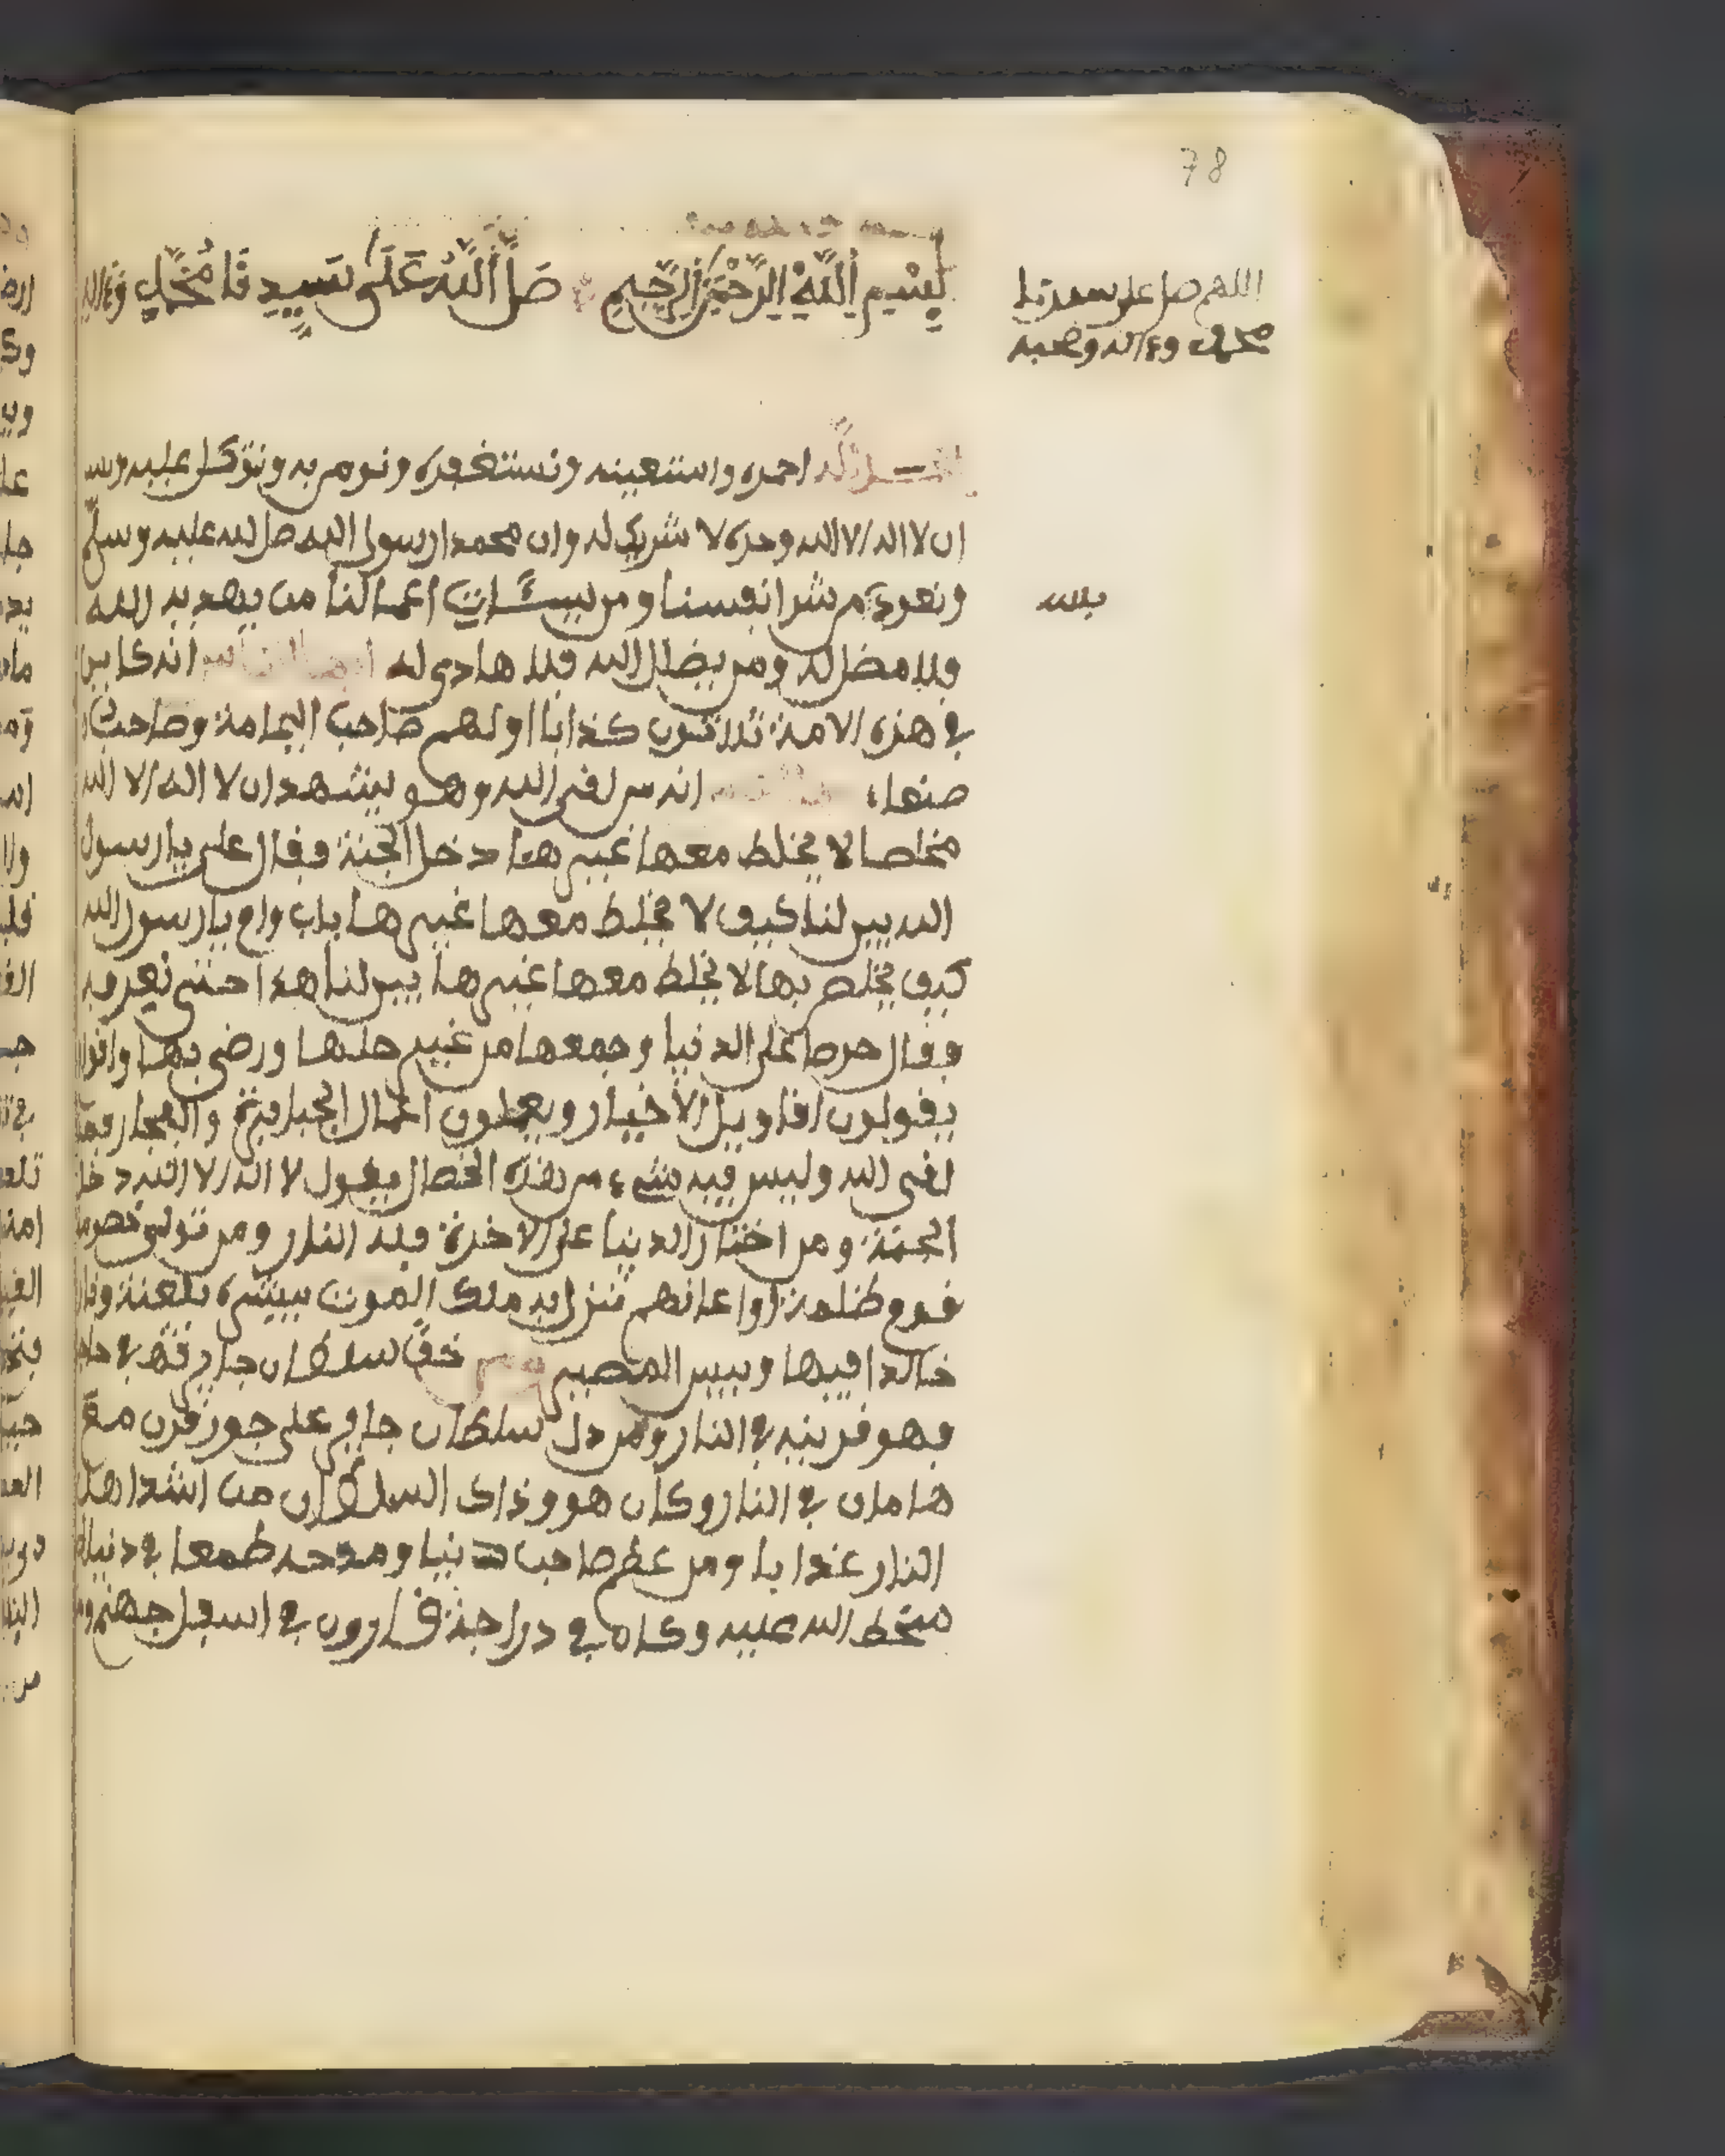 78
بِسْمِ اِللَّهِ اِلرَّحْمَنِ اِلرَّحِيمِ صَلَّى أللَّهُ عَلَى سَيِّدِنَا مُحَمَّدٍ وَءَالِهِ
اللهم صل على سيدنا
محمد وءاله وصحبه
الحمد لله احمده واستعينه ونستغفره ونومن به ونتوكل عليه
ان لا اله الا الله وحده لا شريك له وان محمدا رسول الله صل الله عليه وسلم
ونعوذ من شر انفسنا ومن سيئات اعمالنا من يهديه الله
بالله
فلا مضل له ومن يضلل الله فلا هادي له ايها الناس انه كاين
في هذه الامة ثلاثون كذابا اولهم صاحب اليمامة وصاحب
صنعاء انه من لقى الله وهو يشهد ان لا اله الا الله
مخلصا لا يخلط معها غيرها دخل الجنة فقال على يا رسول
الله بين لنا كيف لا يخلط معها غيرها باب وام يا رسول الله
كيف يخلص بها لا يخلط معها غيرها بين لنا هذا حتى نعرفه
فقال حرصا على الدنيا وجمعها من غير حلها ورضى بها واقوا
يقولون اقاويل الاخيار ويعملون اعمال الجبابرة والفجار فمن
لقى الله وليس فيه شيء من هذه الخصال يقول لا اله الا الله دخل
الجنة ومن اختار الدنيا على الاخرة فله النار ومن تولى خصومة
قوم ظلمة اوا عانهم نزل به ملك الموت يبشره بلعنة ونار
خالدا فيها وبيس المصير ومن خف سلطان جاير في حاجة
فهو قرينه في النار ومن دل سلطان جاير على جور قرن مع
هامان في النار وكان هو وذاك السلطان من اشد اهل
النار عذابا ومن عظم صاحب دنيا ومدحه طمعا في دنياه
سخط الله عليه وكان في دراجة قارون في اسفل جهنم ومن